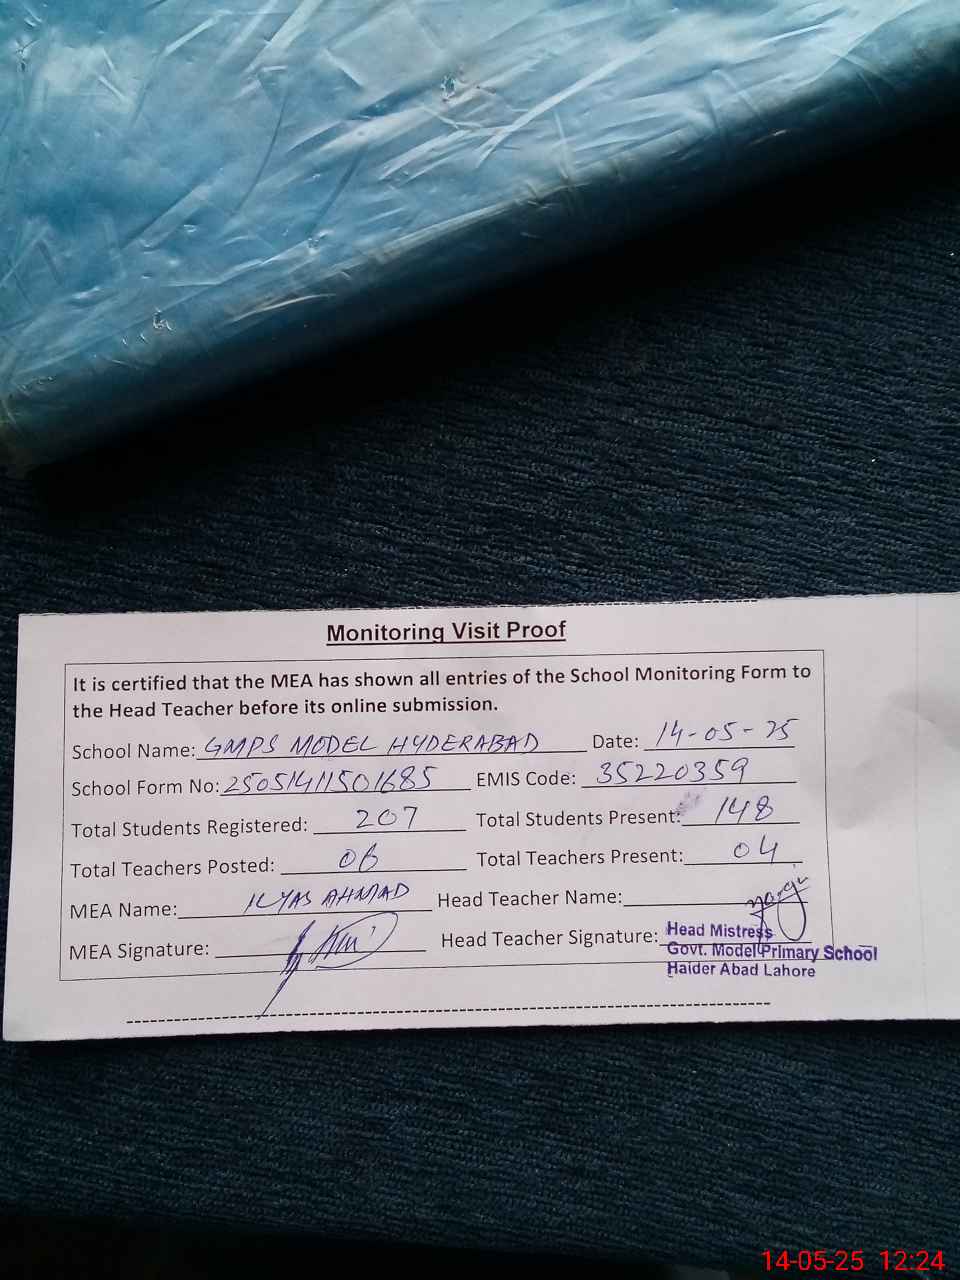 Monitoring Visit Proof
It is certified that the MEA has shown all entries of the School Monitoring Form to
the Head Teacher before its online submission.
School Name: GMPS MODEL HYDERABAD Date: 14-05-25
School Form No: 25051411501685 EMIS Code: 35220359
Total Students Registered: 207 Total Students Present: 148
Total Teachers Posted: 06 Total Teachers Present: 04
MEA Name: ILYAS AHMAD Head Teacher Name:
MEA Signature: Head Teacher Signature:
Head Mistress
Govt. Model Primary School
Haider Abad Lahore
14-05-25 12:24